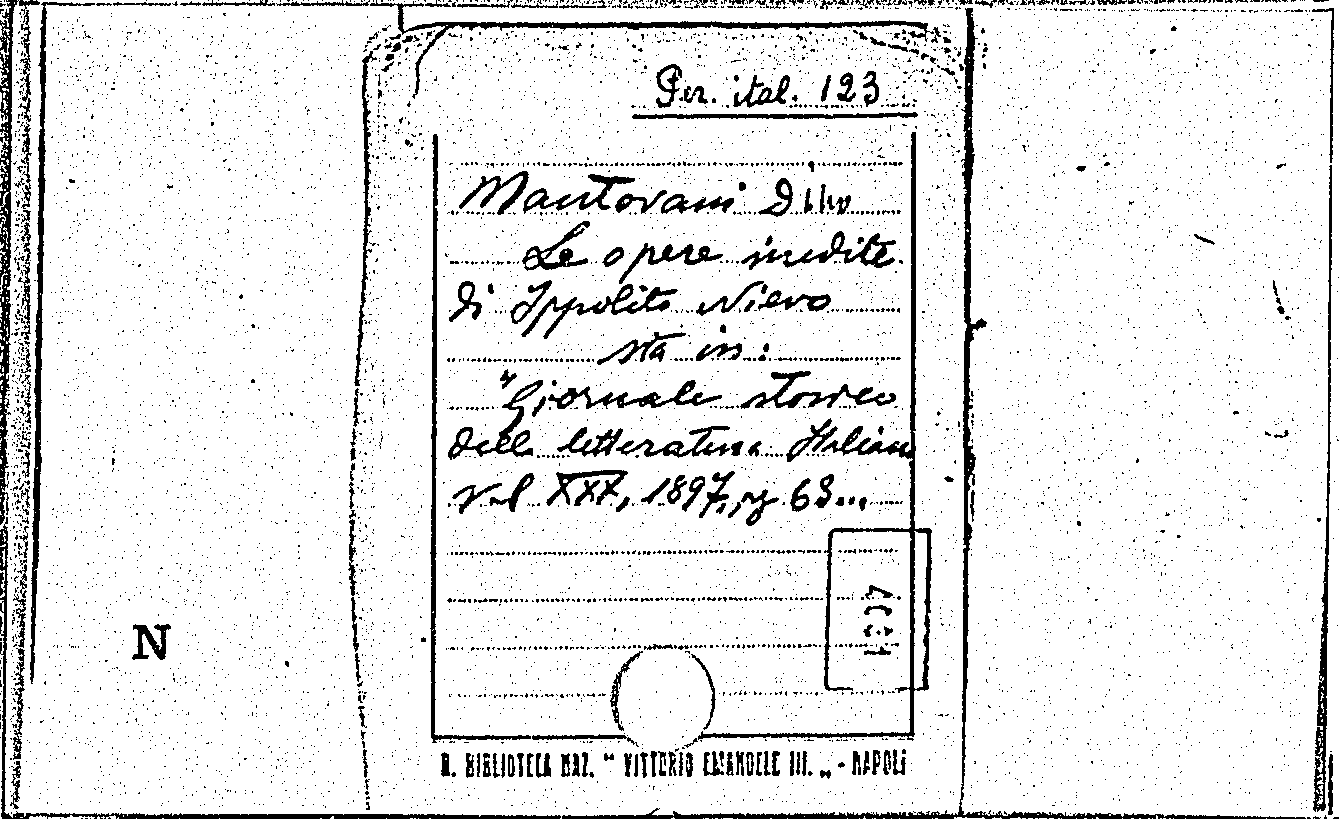 Per. ital. 123
Mantovani Dino
Le opere inedite
di Ippolito Nievo
sta in:
"Giornale storico
della letteratura Italiana
Vol XXX, 1897, pg 63...
N
R. BIBLIOTECA NAZ. " VITTORIO EMANUELE III. „ - NAPOLI